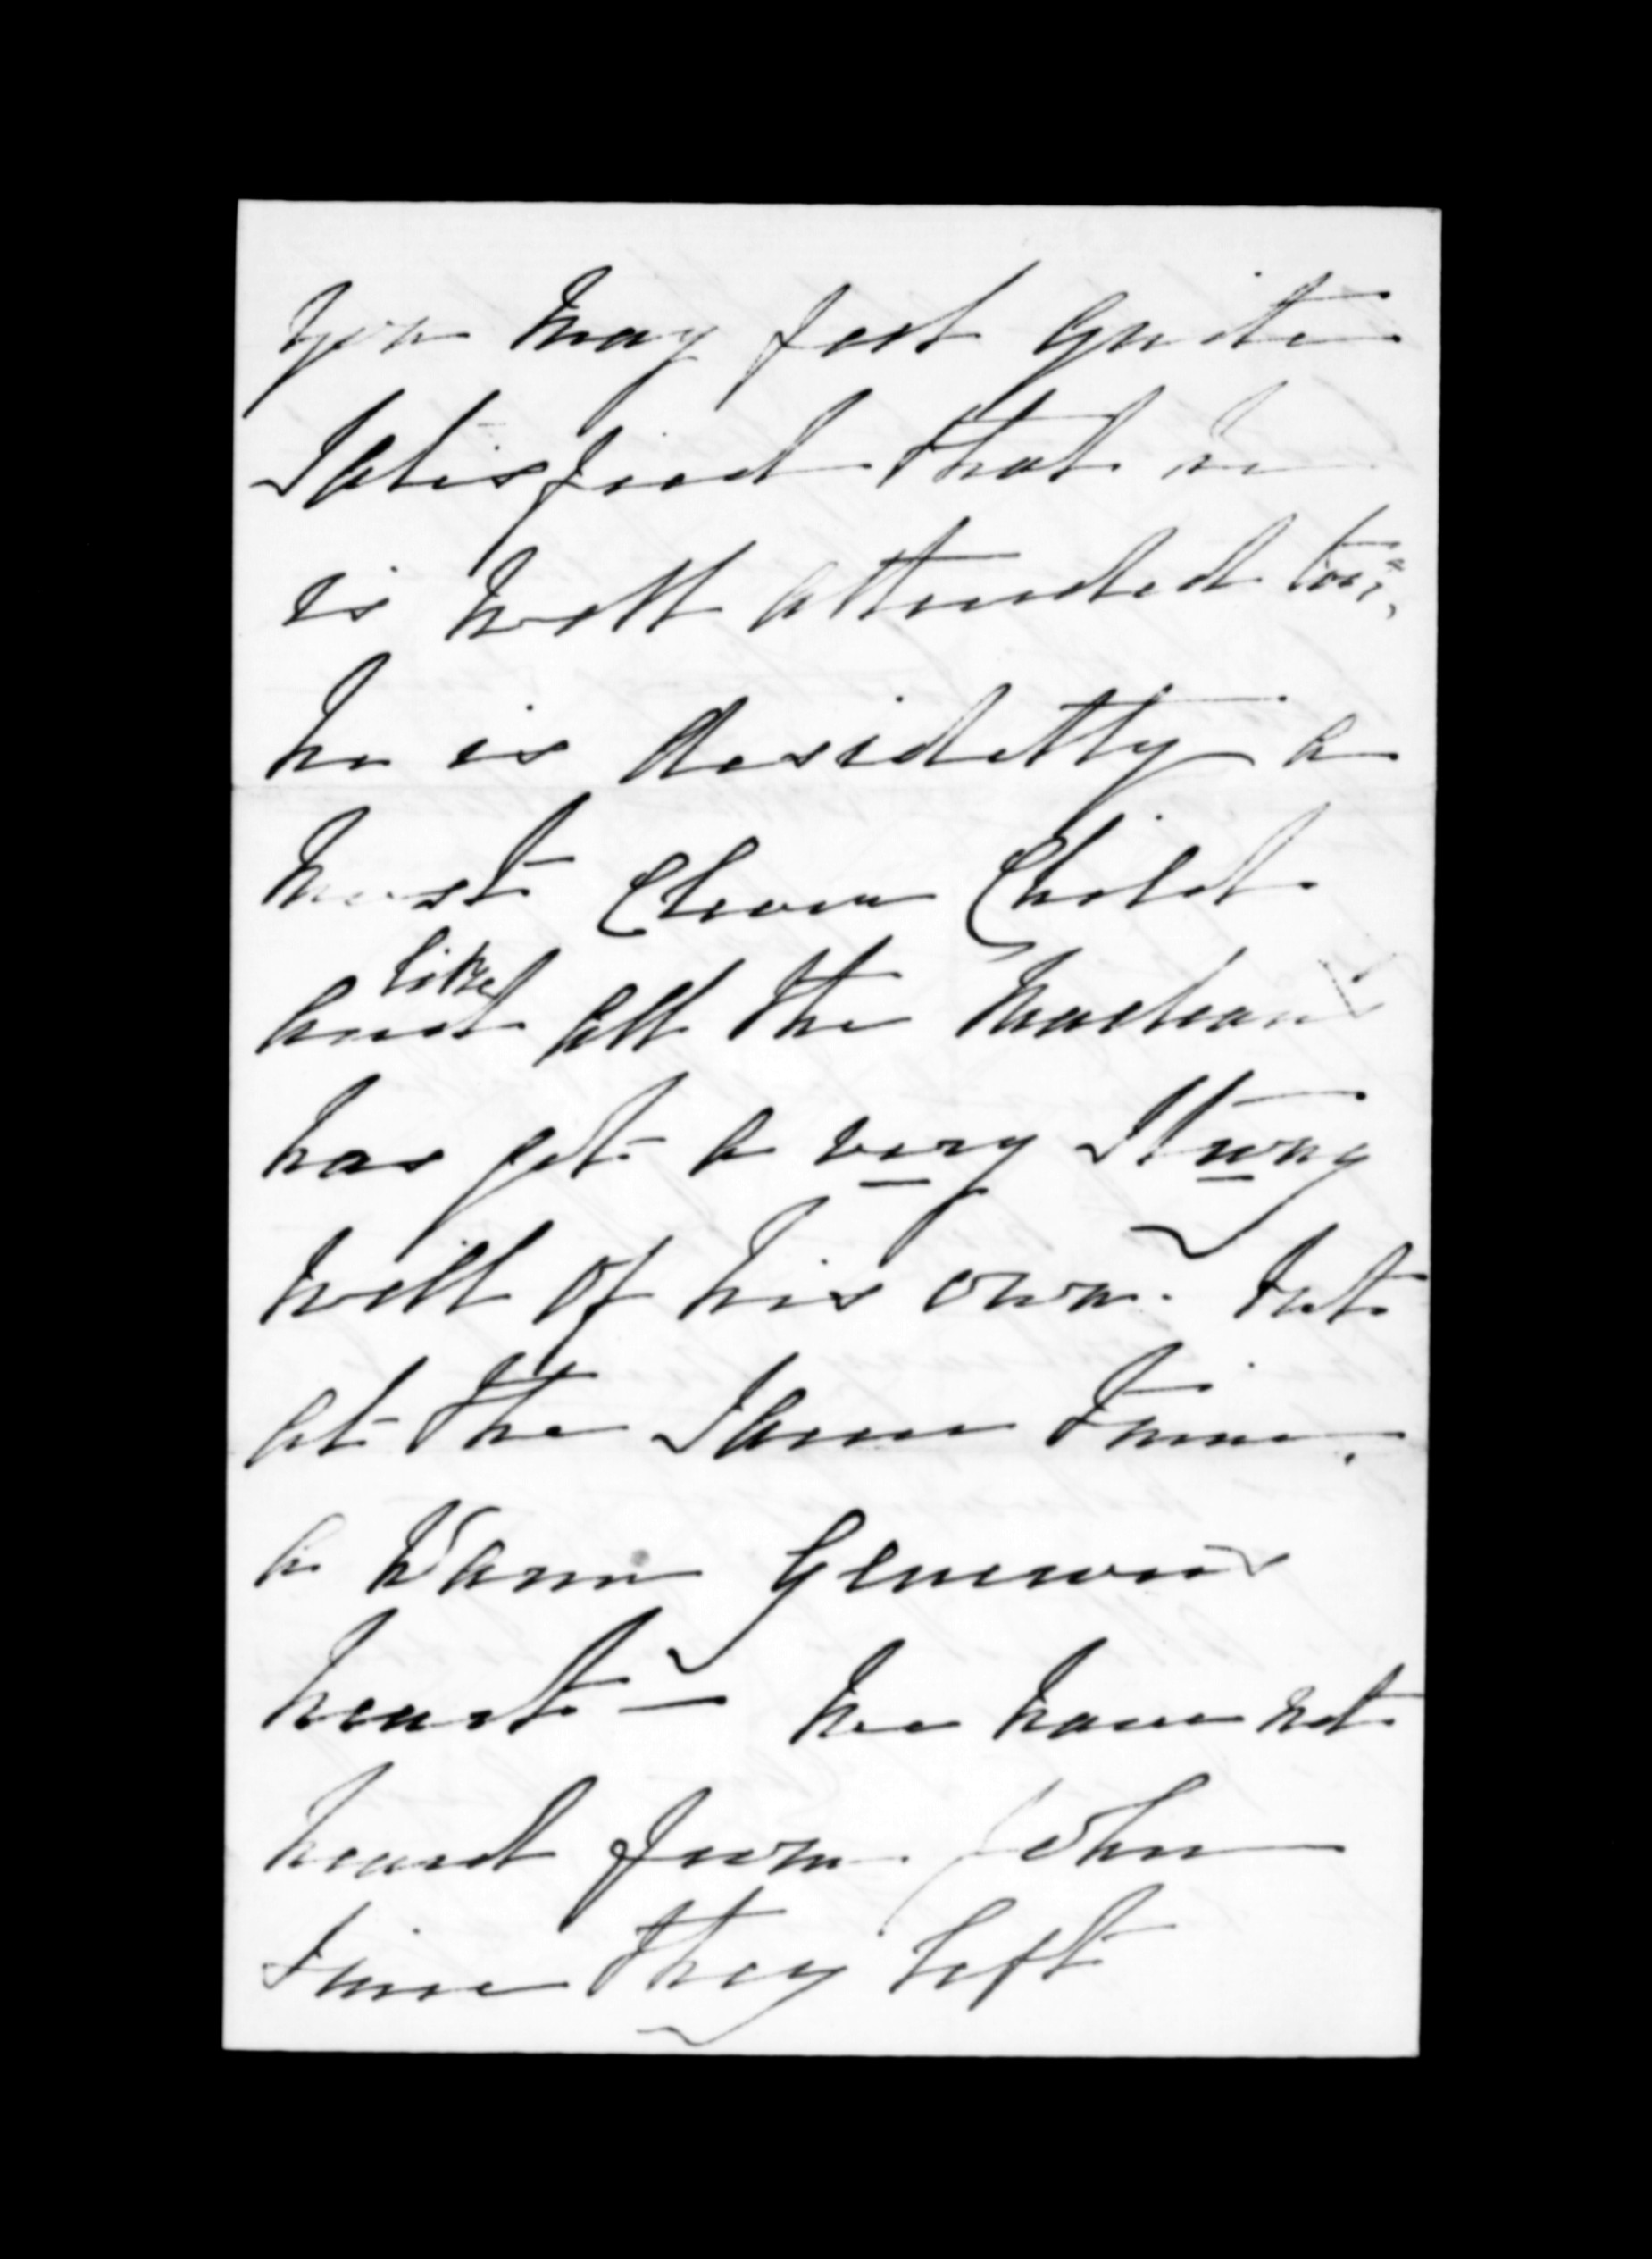 you may feel quite
satisfied that he
is well attended too,
he is desidetly a
most Clever Child
and like all the Macleans
has got a very strong
will of his own. but
at the same time,
a warm Generous
heart — We have not
heard from John
since they left